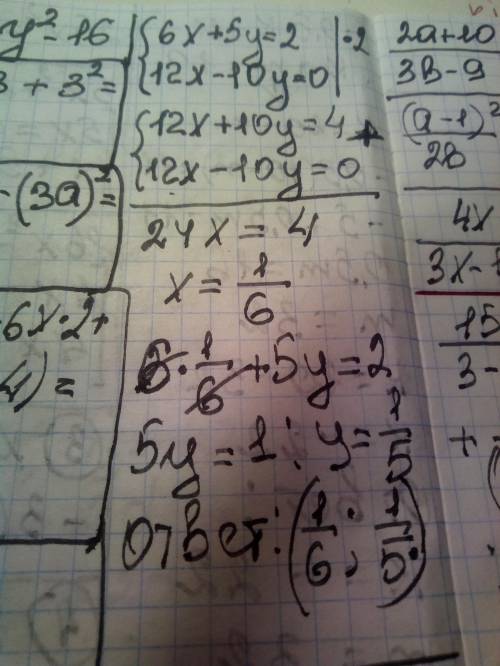 y²-16
3 + 3² =
-(3a)² =
6x·2+
4) =
{6x+5y=2 |·2
{12x-10y=0
{12x+10y=4 +
{12x-10y=0
24x = 4
x = 1/6
6·1/6+5y=2
5y=1; y=1/5
Ответ: (1/6; 1/5)
2a+10
3b-9
(a-1)²
2b
4x
3x-
15
3-
+